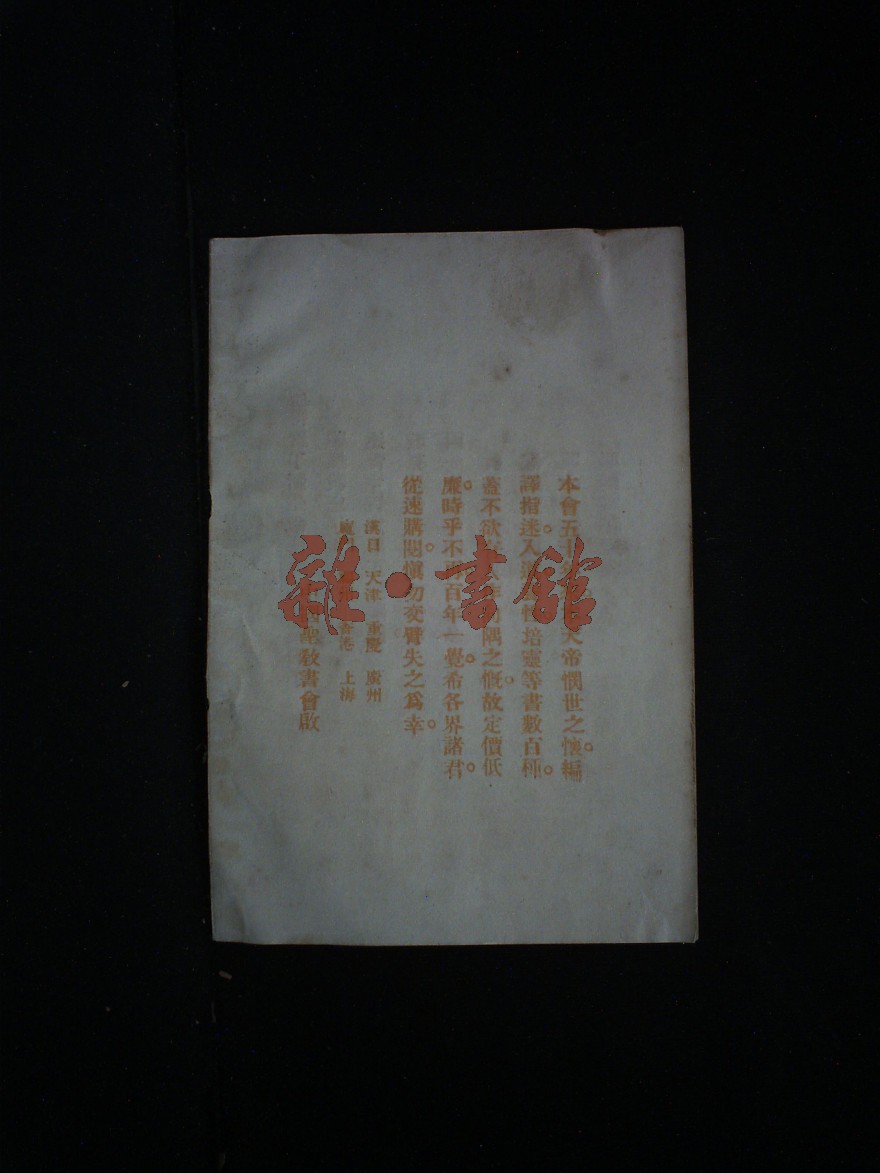 本會五十大帝憫世之懷。編
譯指迷。入性培靈等書數百種。
蓋不欲隅之慨。故定價低
廉。時乎不百年一覺。希各界諸君。
從速購閱。愼勿交臂失之爲幸。
漢口 天津 重慶 廣州
香港 上海
聖敎書會啟
雜·書館